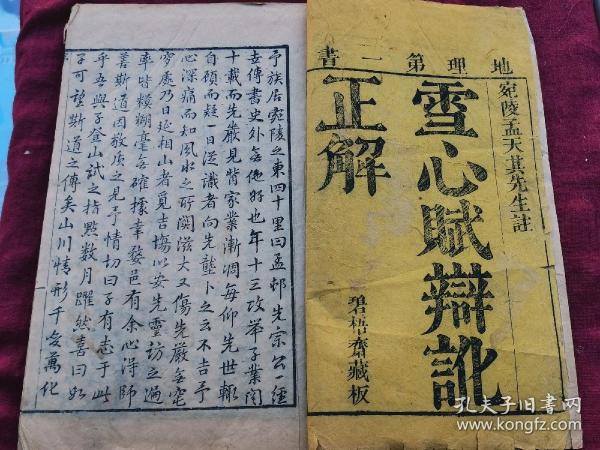 地理第一書
宛陵孟天其先生註
雪心賦辯訛
正解
碧梧齋藏板
予族居宛陵之東四十里曰孟邨先宗公經
史傳書史外無他好也年十三改舉子業閱
十載而先嚴見背家業漸凋每仰先世輙
自頋而疑一日從識者向先壟卜之云不吉予
心深痛而知風水之所關滋大又傷先嚴無窀
穸處乃日延相山者覓吉塲以安先靈訪之遍
率皆糢糊毫無確據幸婺邑有余心得師
善斯道因敬
之見予情切曰子有志于此
乎吾與子登山試之指點数月躍然喜曰如
子可望斯道之傳矣山川情形千変萬化
孔夫子旧书网
www.kongfz.com